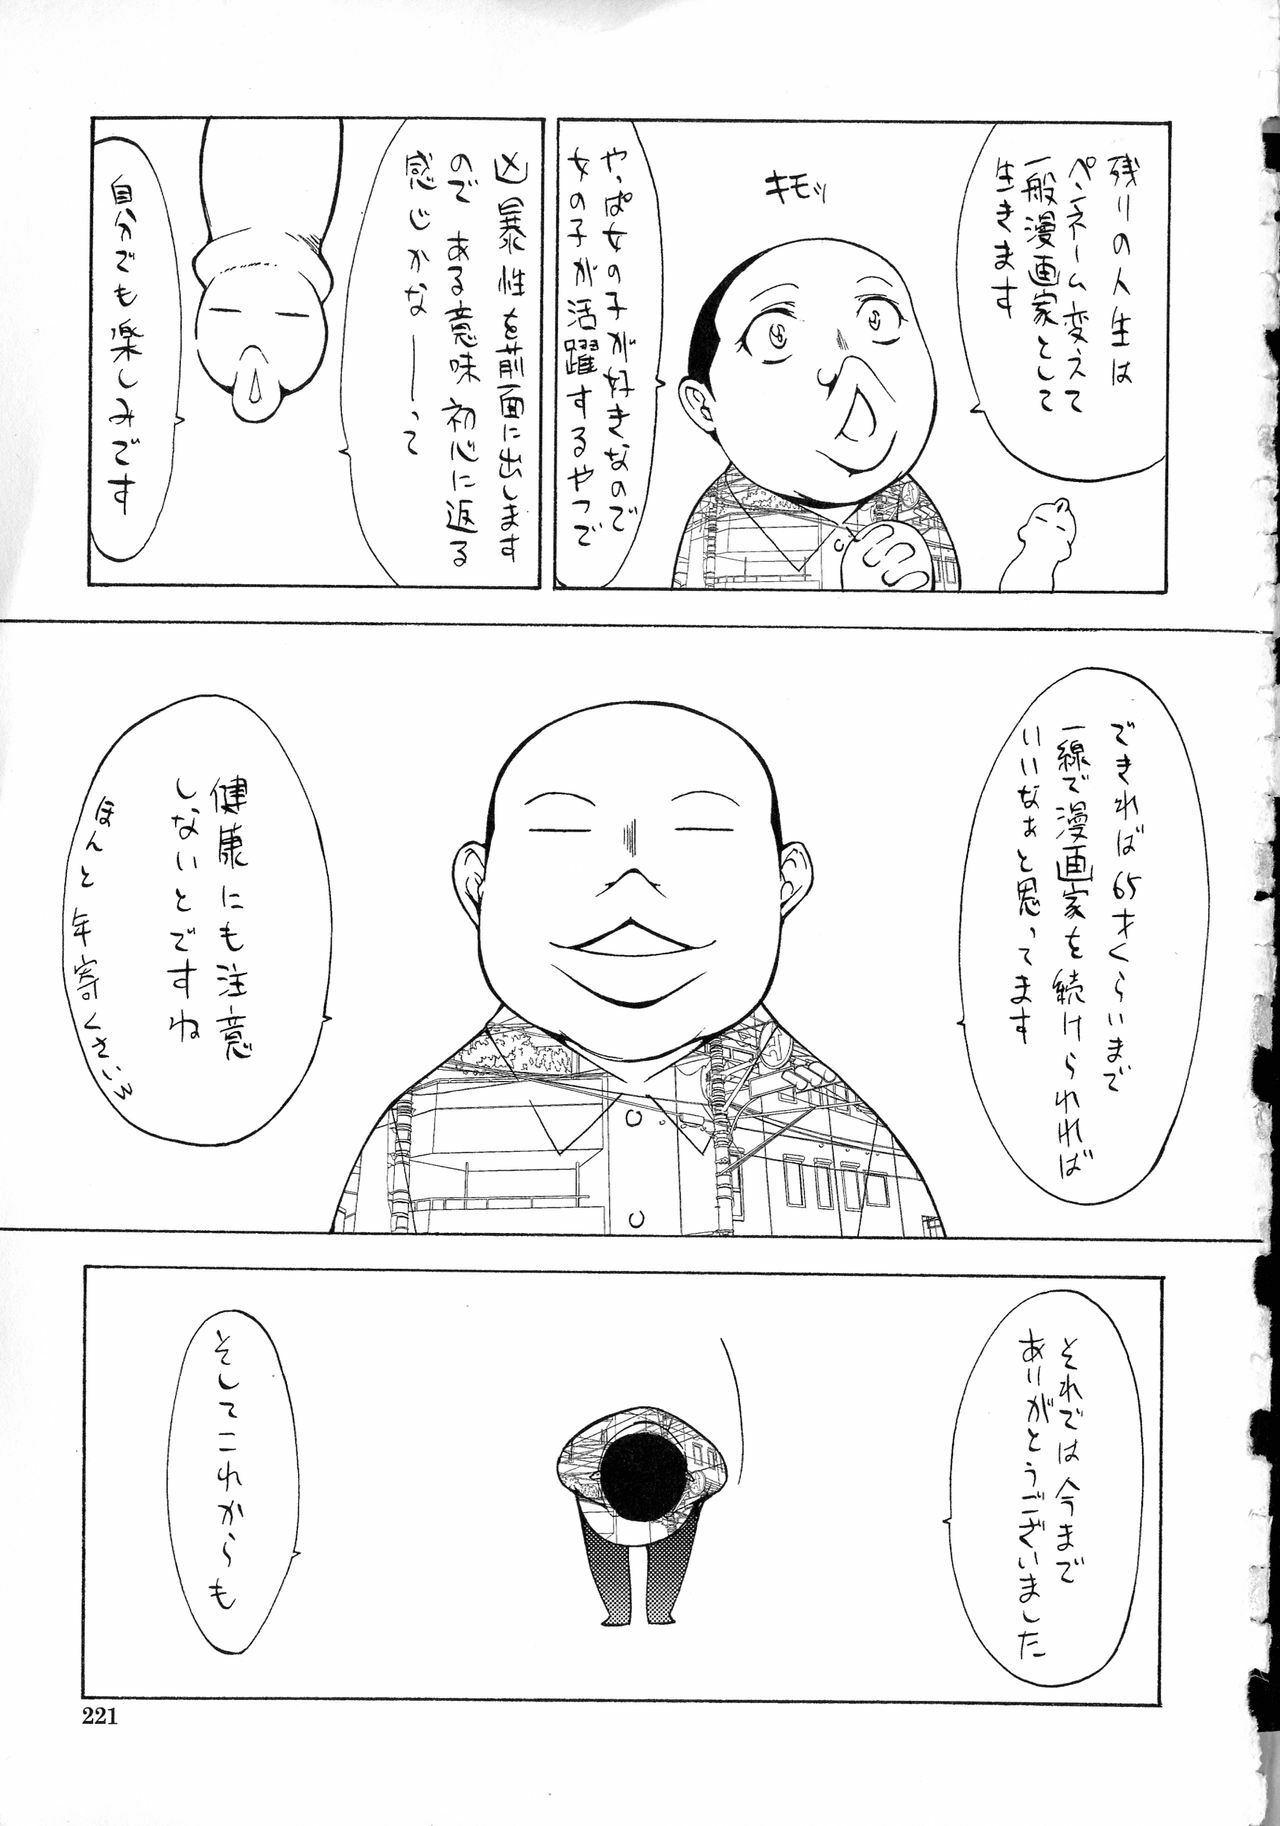 残りの人生は
ペンネーム変えて
一般漫画家として
生きます
キモッ
やっぱ女の子が好きなので
女の子が活躍するやつで
凶暴性を前面に出します
ので ある意味 初心に返る
感じかなーーって
自分でも楽しみです
できれば65才くらいまで
一線で漫画家を続けられれば
いいなぁと思ってます
健康にも注意
しないとですね
ほんと年寄くさいろ
それでは今まで
ありがとうございました
そしてこれからも
221